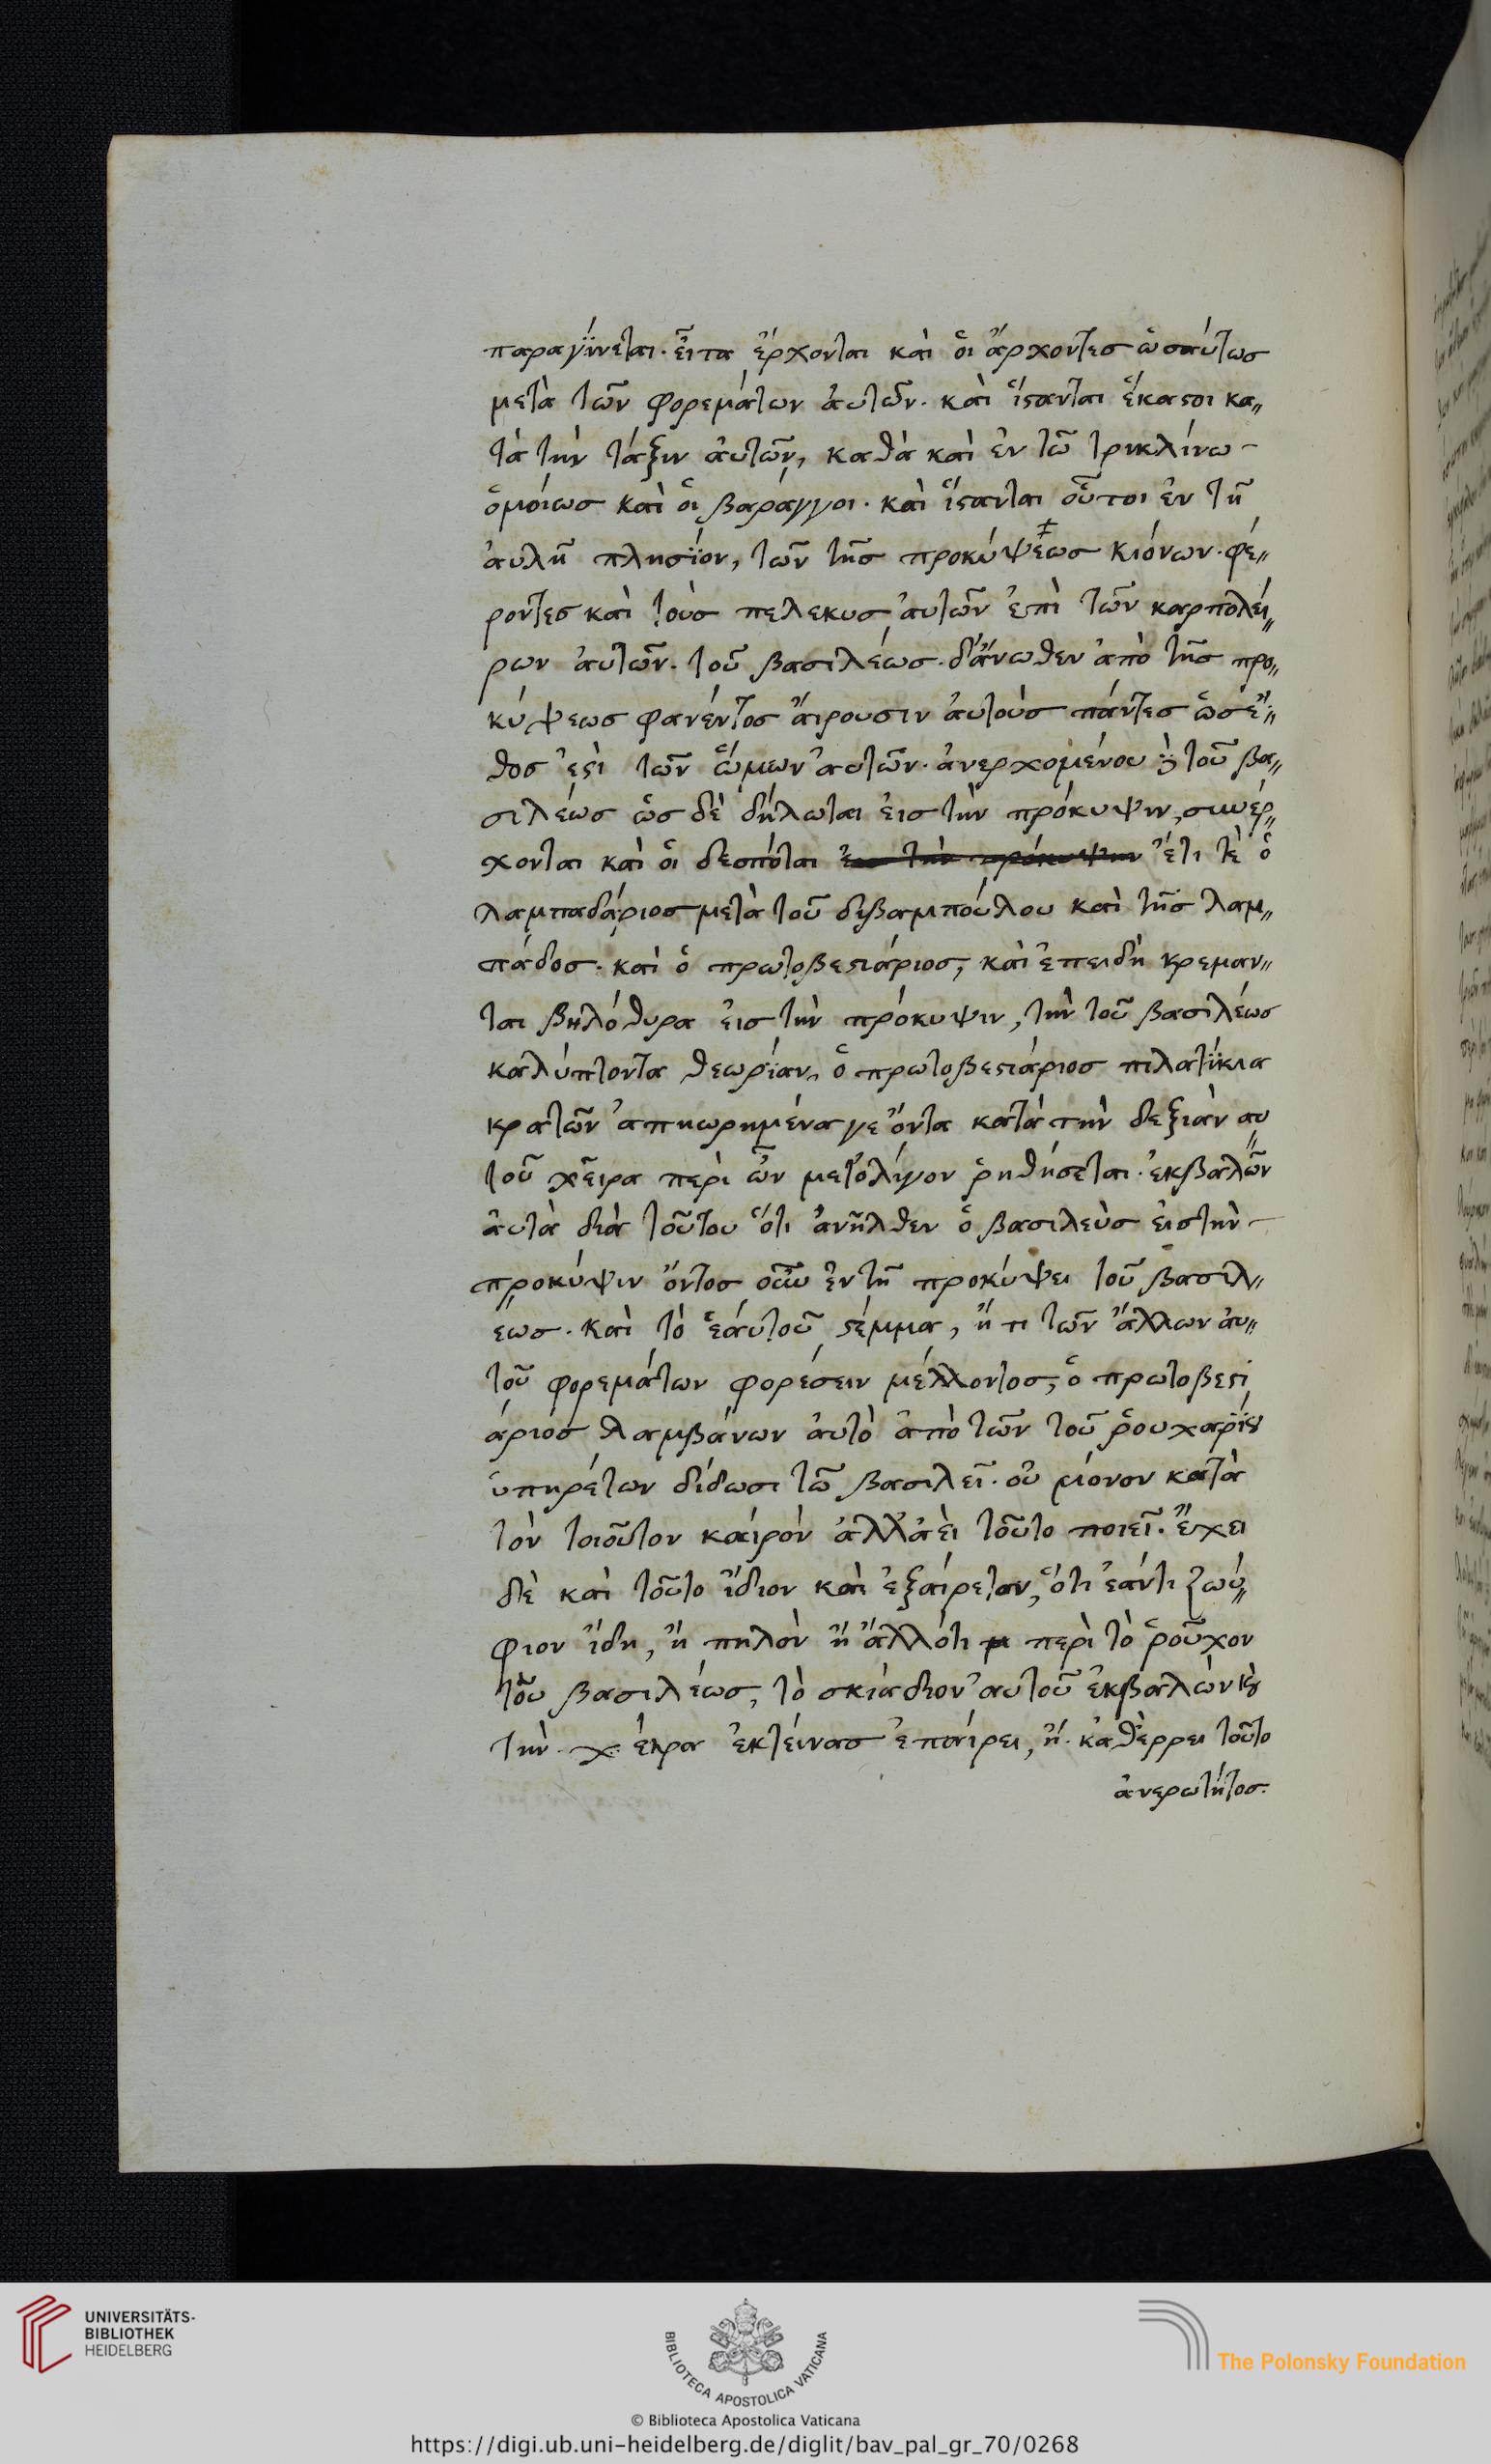 παραγίνεται. εἶτα ἔρχονται καὶ ὁι ἄρχοντες ὡσαύτως
μετὰ τῶν φορεμάτων ἀυτῶν. καὶ ἵστανται ἕκαστοι κα„
τὰ τὴν τάξιν ἀυτῶν, καθὰ καὶ ἐν τῶ τρικλίνω –
ὁμοίως καὶ ὁι βαράγγοι. καὶ ἵστανται οὗτοι ἐν τῆ
ἀυλῆ πλησϊόν, τῶν τῆς προκύψεως κιόνων. φέ„
ροντες καὶ τοὺς πελεκυς ἀυτῶν ἐπὶ τῶν καρπολεί„
ρων ἀυτῶν. τοῦ βασιλέως. δ'ἄνωθεν ἀπὸ τῆς προ„
κύψεως φανέντος ἄιρουσιν ἀυτοὺς πάντες ὡς ἔ„
θος ἐστὶ τῶν ὤμων ἀυτῶν. ἀνερχομένου τοῦ βα„
σιλέως ὡς δὲ δήλωται ἐις τὴν πρόκυψιν, συνέρ„
χονται καὶ ὁι δεσπόται ἐις τὴν πρόκυψιν ἔτι τὲ ὁ
λαμπαδάριος μετὰ τοῦ διβαμπούλου καὶ τῆς λαμ„
πάδος. καὶ ὁ πρωτοβεστιάριος, καὶ ἐπειδὴ κρεμαν„
ται βηλόθυρα ἐις τὴν πρόκυψιν, τὴν τοῦ βασιλέως
καλύπτοντα θεωρίαν, ὁ πρωτοβεστιάριος πιλατίκια
κρατῶν ἀπηωρημένα γε ὄντα κατὰ τὴν δεξιὰν αυ„
τοῦ χεῖρα περὶ ὧν μετ'ὀλίγον ῥηθήσεται. ἐκβαλῶν
ἀυτὰ διὰ τοῦτου ὅτι ἀνῆλθεν ὁ βασιλεὺς ἐις τὴν –
προκύψιν ὄντος οὖν ἐν τῆ προκύψει τοῦ βασιλ„
εως. καὶ τὸ ἑαύτοῦ στέμμα, ἤ τι τῶν ἄλλων ἀυ„
τοῦ φορεμάτων φορέσειν μέλλοντος, ὁ πρωτοβεστι
άριος λαμβάνων ἀυτὸ ἀπὸ τῶν τοῦ ῥουχαρίου
ὑπηρέτων δίδωσι τῶ βασιλεῖ. οὐ μόνον κατὰ
τὸν τοιοῦτον καίρὸν ἀλλ'ἀεὶ τοῦτο ποιεῖ. ἔχει
δὲ καὶ τοῦτο ἴδιον καὶ ἐξαίρετον, ὅτι ἐάν τι ζωύ„
φιον ἴδη, ἢ πηλὸν ἢ ἄλλότι περὶ τὸ ῥοῦχον
τοῦ βασιλέως, τὸ σκιάδιον ἀυτοῦ ἐκβαλὼν καὶ
τὴν χεῖρα ἐκτείνας ἐπαίρει, ἢ. καθὲρρει τοῦτο
ἀνερωτήτος.
UNIVERSITÄTS-
BIBLIOTHEK
HEIDELBERG
BIBLIOTECA APOSTOLICA VATICANA
The Polonsky Foundation
© Biblioteca Apostolica Vaticana
https://digi.ub.uni-heidelberg.de/diglit/bav_pal_gr_70/0268